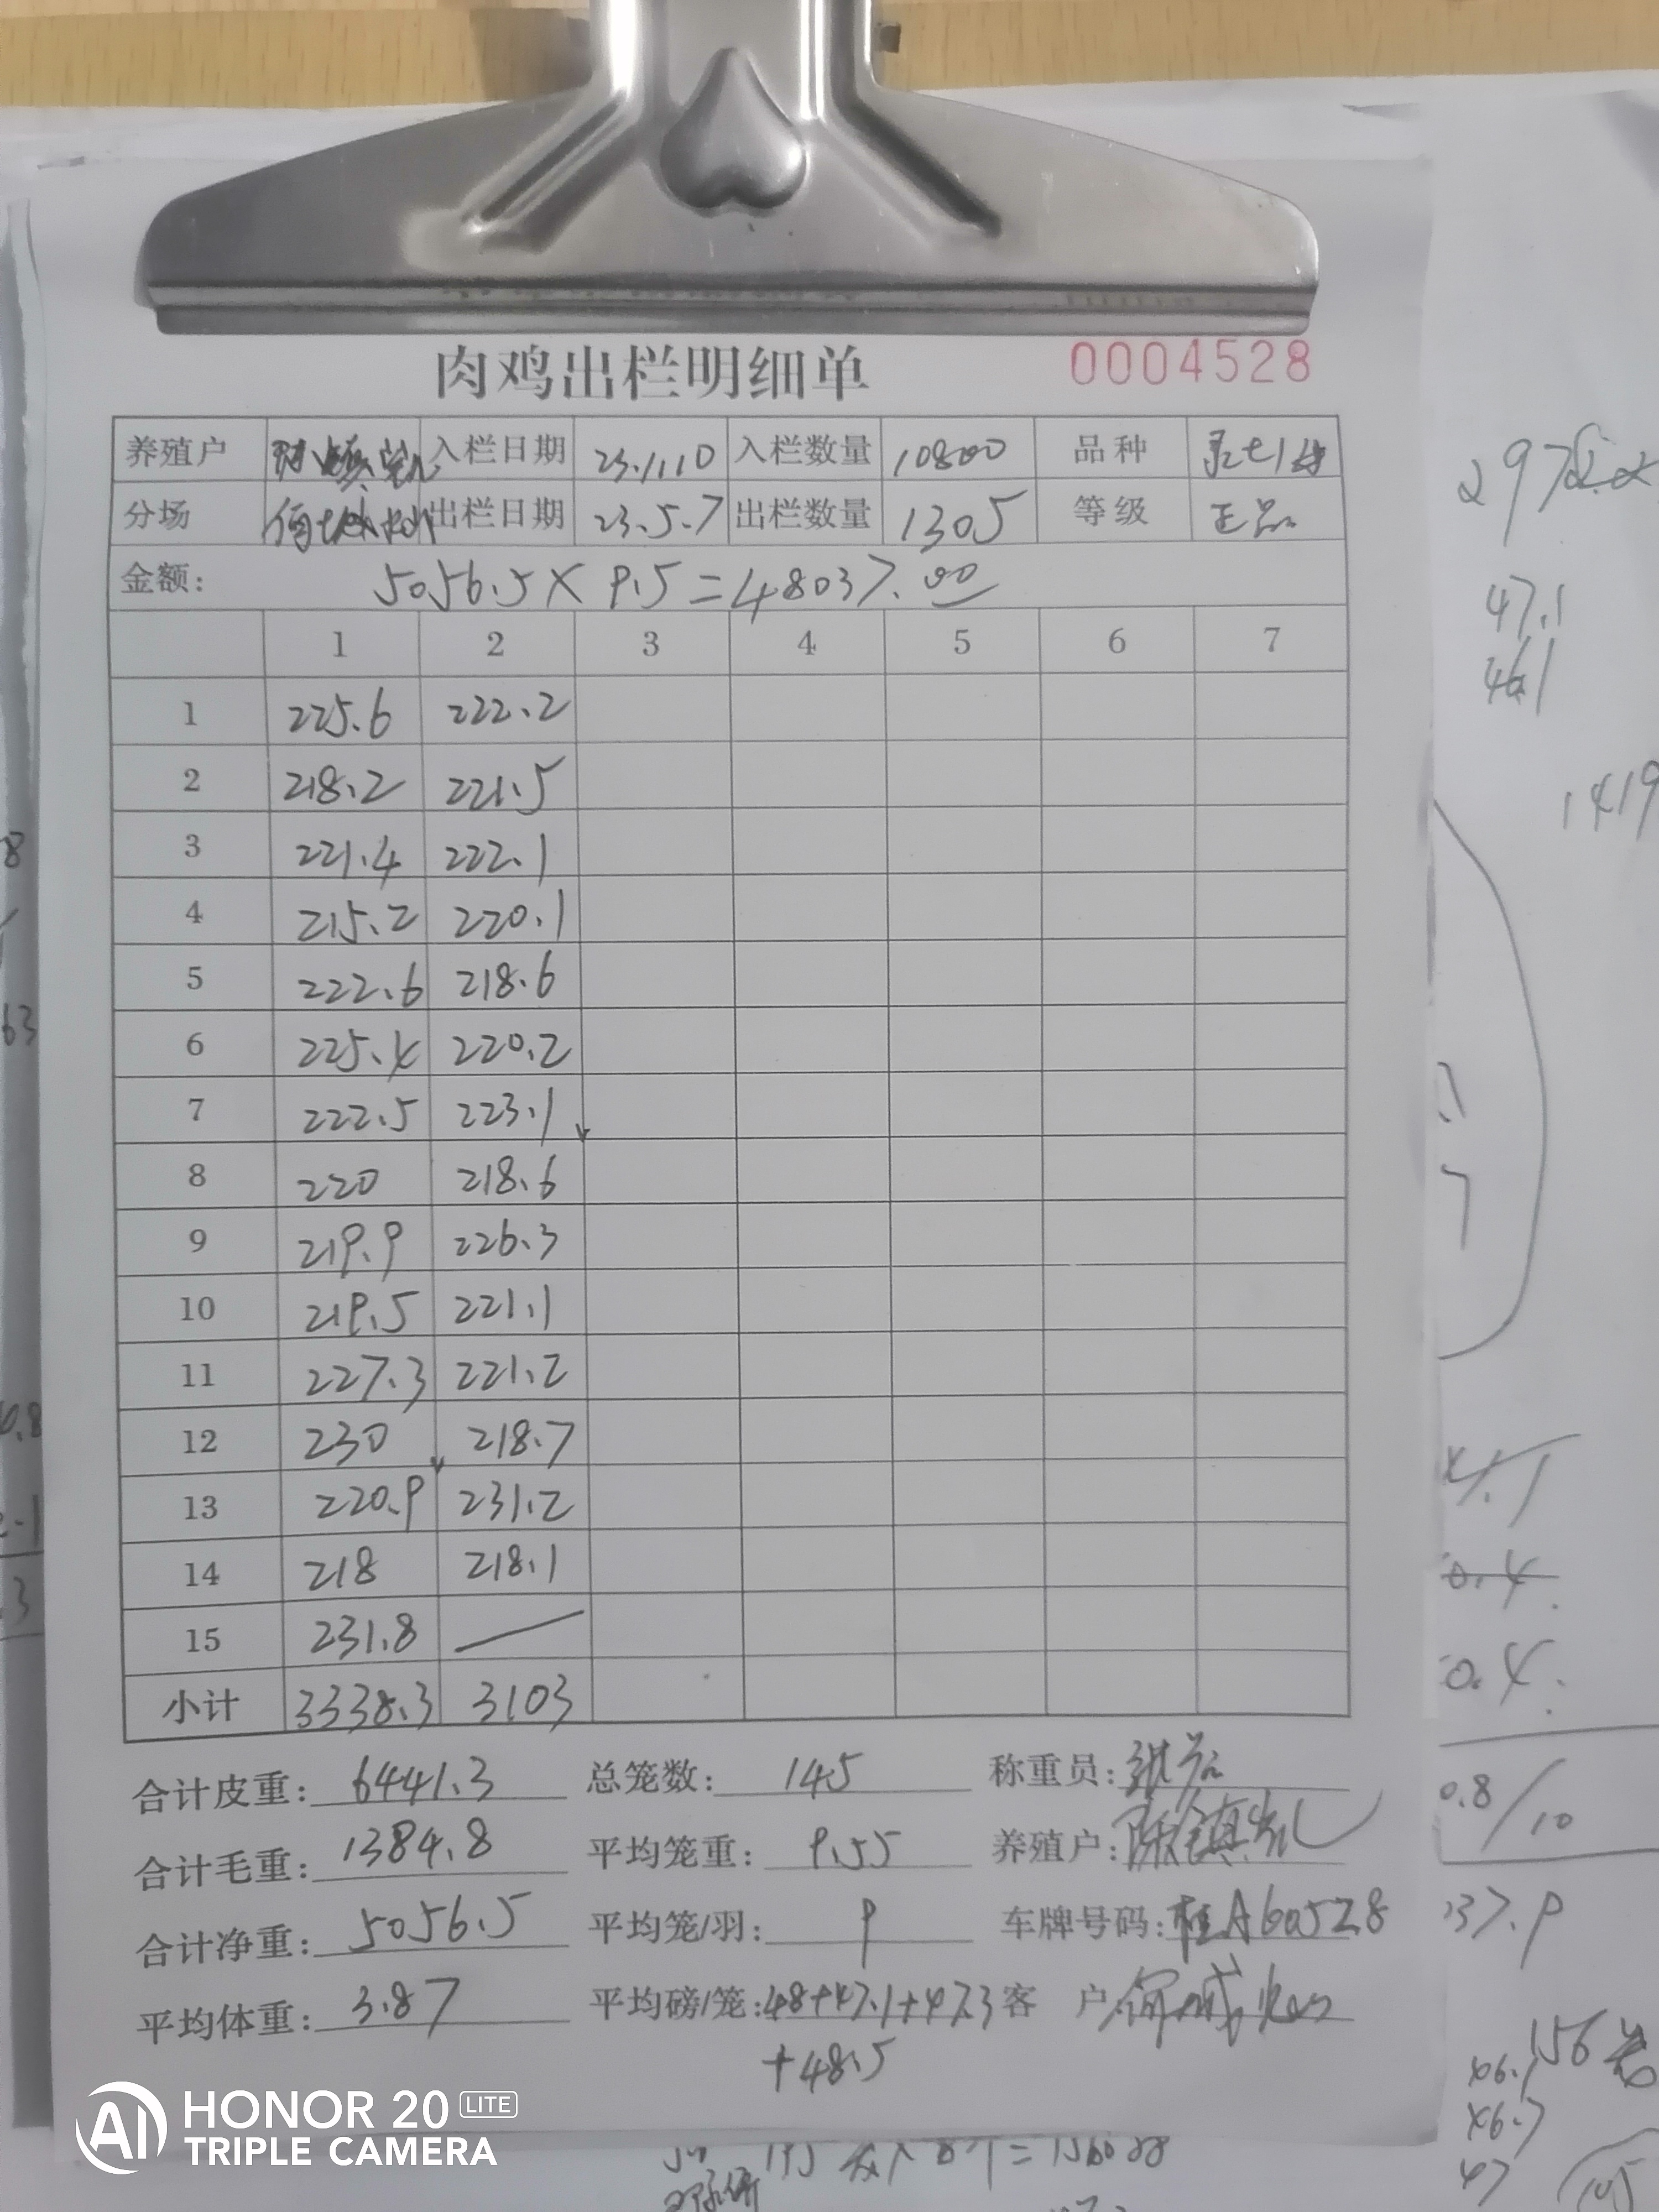 肉鸡出栏明细单 0004528
养殖户 陈镇凯 入栏日期 23.1.10 入栏数量 10800 品种
分场 出栏日期 23.5.7 出栏数量 1305 等级 正品
金额: 5056.5×9.5=48037.00
1 2 3 4 5 6 7
1 225.6 222.2
2 218.2 221.5
3 221.4 222.1
4 215.2 220.1
5 222.6 218.6
6 225.4 220.2
7 222.5 223.1
8 220 218.6
9 219.9 226.3
10 219.5 221.1
11 227.3 221.2
12 230 218.7
13 220.9 231.2
14 218 218.1
15 231.8
小计 3338.3 3103
合计皮重: 6441.3 总笼数: 145 称重员:
合计毛重: 1384.8 平均笼重: 9.55 养殖户: 陈镇凯
合计净重: 5056.5 平均笼/羽: 9 车牌号码: 桂A60528
平均体重: 3.87 平均磅/笼: 48+47.1+47.3 客 户:
+48.5
47.1
46.1
1419
0.4
0.4
0.8/10
37.9
156
46.7
47
HONOR 20 LITE
TRIPLE CAMERA